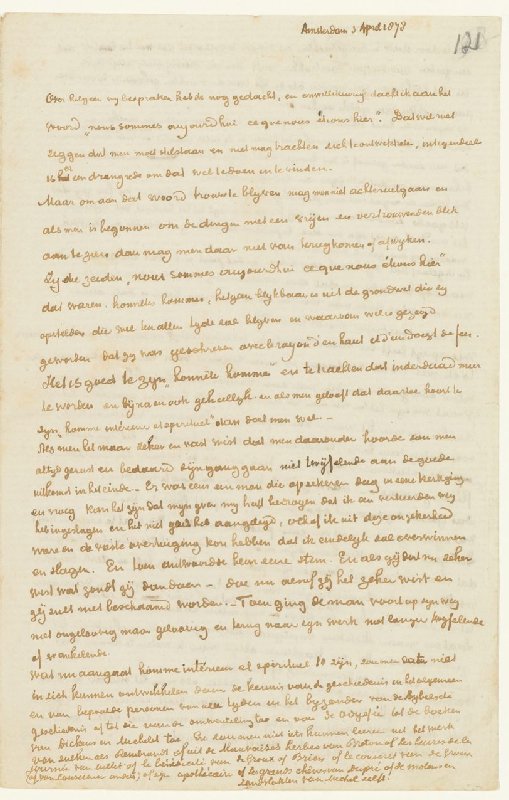 Amsterdam 3 April 1878
121
Over hetgeen wij bespraken heb ik nog gedacht, en onwillekeurig dacht ik aan het
woord „nous sommes aujourd'hui ce que nous étions hier”. Dat wil niet
zeggen dat men moet stilstaan en niet mag trachten zich te ontwikkelen, integendeel
is er een dringende om dat wel te doen en te vinden.
Maar om aan dat woord trouw te blijven mag men niet achteruitgaan en
als men is begonnen om de dingen met een vrijen en vertrouwenden blik
aan te zien dan mag men daar niet van terugkomen of afwijken.
Zij die zeiden „nous sommes aujourd'hui ce que nous étions hier”
dat waren honnête hommes, hetgeen blijkbaar is uit de grondwet die zij
opstelden die wel ten allen tijde zal blijven en waarvan wel is gezegd
geworden dat zij was geschreven avec le rayon d'en haut et d'un doigt de feu.
Het is goed te zijn „honnête homme” en te trachten dat inderdaad meer
te worden en bijna en ook geheellijk en als men gelooft dat daartoe hoort te
zijn „homme intérieur et spirituel” dan doet men wel.
Als men het maar zeker en vast wist dat men daaronder hoorde zou men
altijd gerust en bedaard zijn gang gaan niet twijfelende aan de goede
uitkomst in het einde. Er was eens een man die op zekeren dag in eene kerk ging
en vroeg kan het zijn dat mijn ijver mij heeft bedrogen dat ik een verkeerden weg
heb ingeslagen en het niet goed heb aangelegd, och of ik uit deze onzekerheid
ware en de vaste overtuiging kon hebben dat ik eindelijk zal overwinnen
en slagen. En toen antwoordde hem eene stem. En als gij dat nu zeker
wist wat zoudt gij dan doen – doe nu alsof gij het zeker wist en
gij zult niet beschaamd worden. – Toen ging de man voort op zijn weg
niet ongeloovig maar geloovig en terug naar zijn werk niet langer twijfelende
of wankelende.
Wat nu aangaat homme intérieur et spirituel te zijn, zou men dat niet
in zich kunnen ontwikkelen door de kennis van de geschiedenis in het algemeen
en van bepaalde personen van alle tijden in het bijzonder van de Bijbelsche
geschiedenis af tot die van de omwenteling toe en van de Odyssée tot de boeken
van Dickens en Michelet toe. En zou men niet iets kunnen leeren uit het werk
van zulken als Rembrandt of uit de Mauvaises herbes van Breton of les heures de la
journée van Millet of le bénédicité van de Groux of Brion of le conscrit van de Groux
(of van Conscience anders) of zijn apothécaire of les grands chênes van Dupré of de molens en
zandvlakten van Michel zelfs.